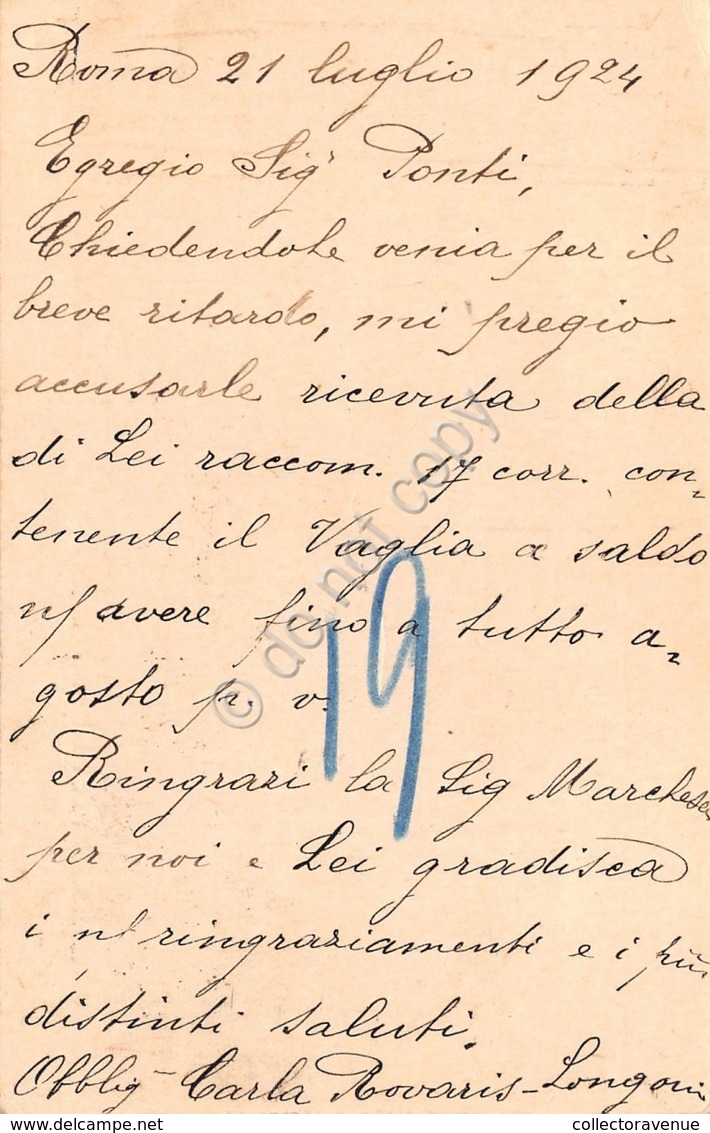 Roma 21 luglio 1924
Egregio Sigʳ Ponti,
Chiedendole venia per il
breve ritardo, mi pregio
accusarle ricevuta della
di Lei raccom. 17 corr. con=
tenente il Vaglia a saldo
n/ avere fino a tutto a=
gosto p. v.
19
Ringrazi la Sig Marchesa
per noi e Lei gradisca
i n/ ringraziamenti e i più
distinti saluti.
Obblig Carla Rovaris-Longoni
© do not copy
collectoravenue.com